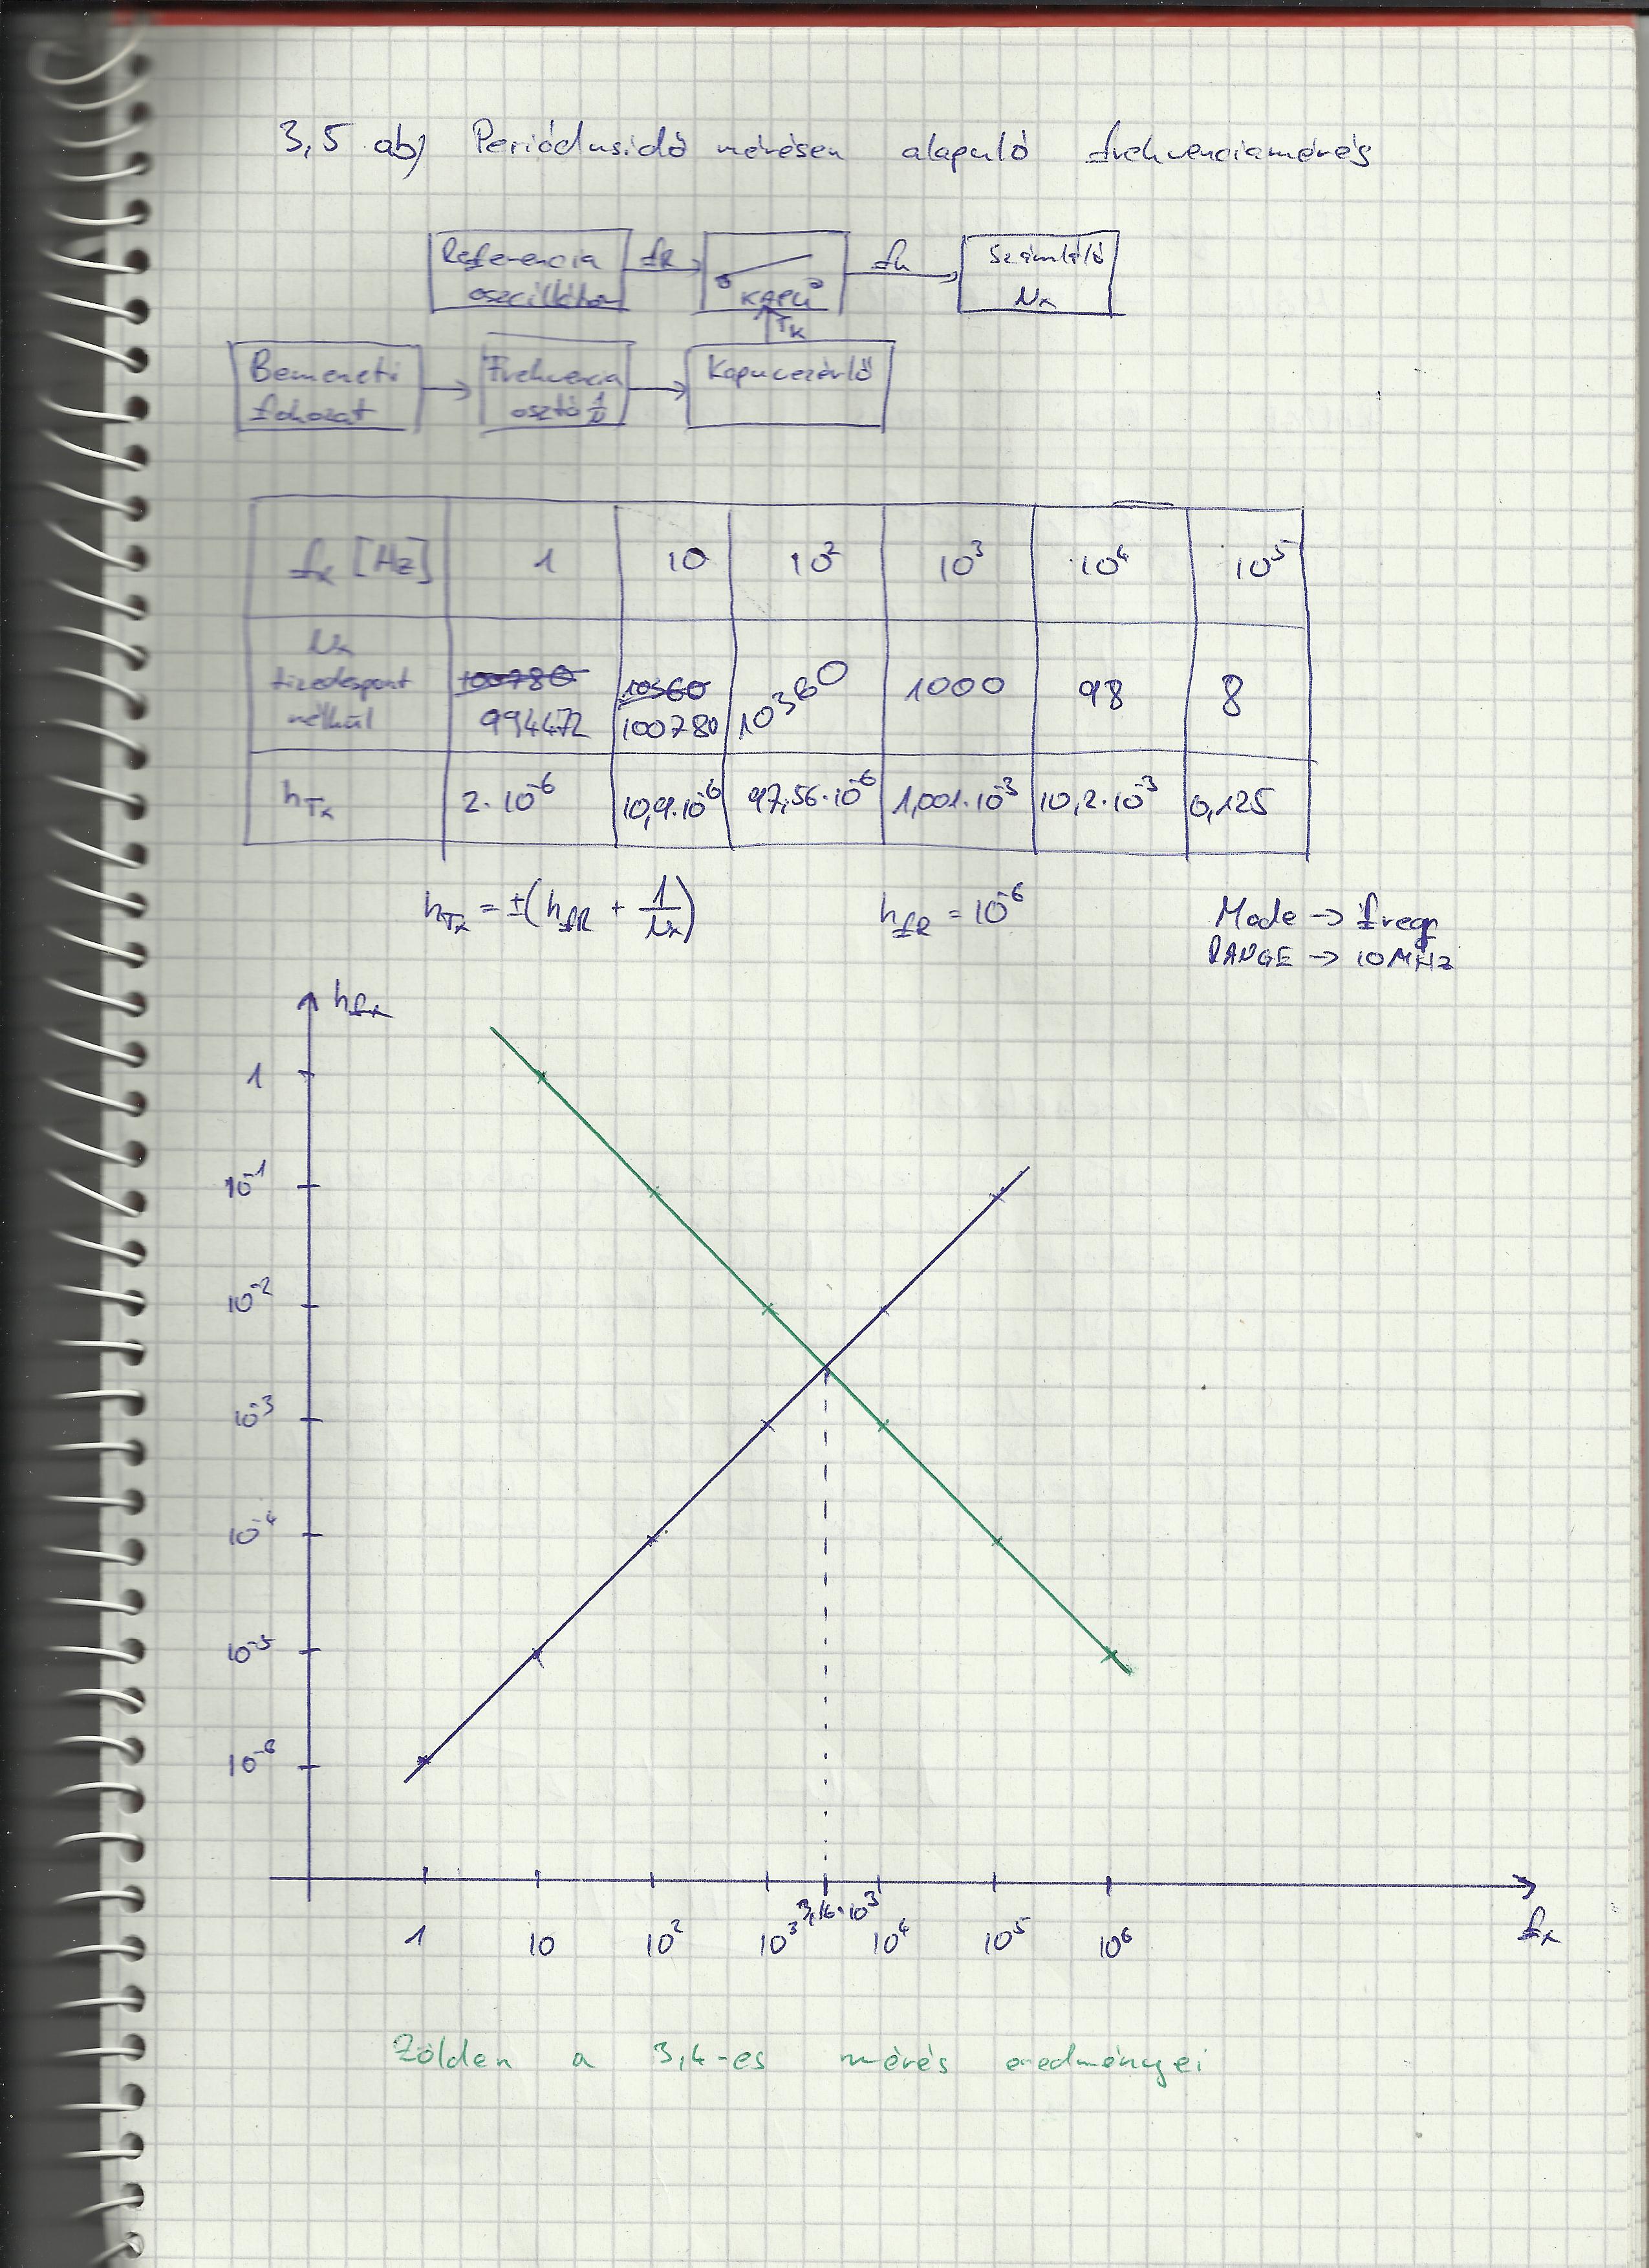 3,5 ab) Periódusidő mérésen alapuló frekvenciamérés
Referencia oszcillátor fR KAPU fk Számláló Nx
TK
Bemeneti fokozat Frekvencia osztó 1/n Kapuvezérlő
fx [Hz] 1 10 10² 10³ 10⁴ 10⁵
Nx tizedespont nélkül 100780 994472 10360 100780 10360 1000 98 8
hTx 2·10⁻⁶ 10,9·10⁻⁶ 97,56·10⁻⁶ 1,001·10⁻³ 10,2·10⁻³ 0,125
hTx = ±(hfR + 1/Nx) hfR = 10⁻⁶ Mode → freq
RANGE → 10MHz
hfx
1
10⁻¹
10⁻²
10⁻³
10⁻⁴
10⁻⁵
10⁻⁶
3,16·10³
1 10 10² 10³ 10⁴ 10⁵ 10⁶ fx
Zölden a 3,4-es mérés eredményei